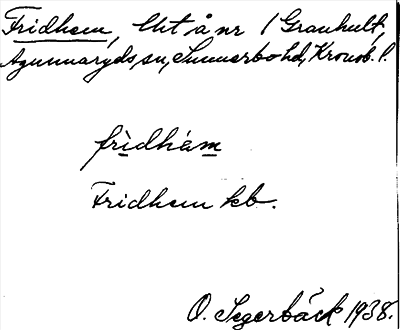 Fridhem, lht å nr 1 Granhult,
Agunnaryds sn, Sunnerbo hd, Kronob. l.
frìdhàm
Fridhem kb.
O. Segerbäck 1938.